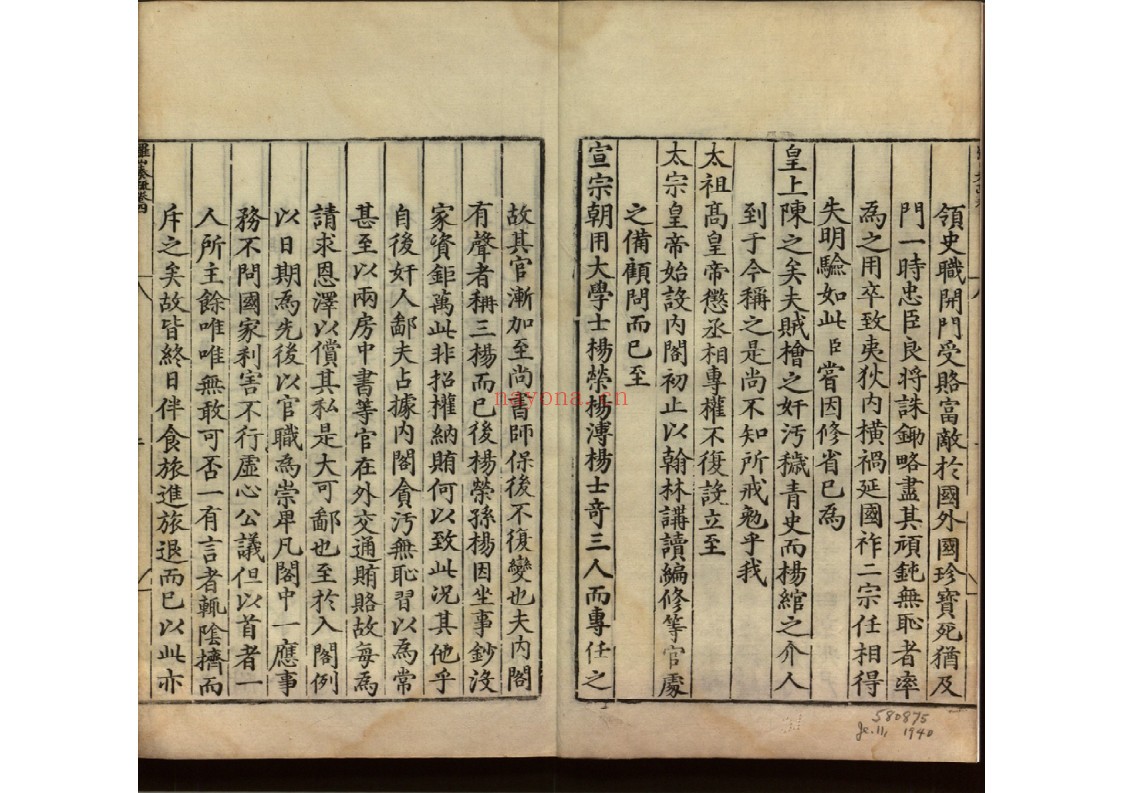 領史職開門受賂富敵於國外國珍寶死猶及
門一時忠臣良將誅鋤略盡其頑鈍無恥者率
為之用卒致夷狄内橫禍延國祚二宗任相得
失明驗如此臣嘗因修省已為
皇上陳之矣夫賊檜之奸汚穢青史而楊綰之介人
到于今稱之是尚不知所戒勉乎我
太祖髙皇帝懲丞相專權不復設立至
太宗皇帝始設内閣初止以翰林講讀編修等官處
之備顧問而已至
宣宗朝用大學士楊榮楊溥楊士竒三人而專任之
故其官漸加至尚書師保後不復變也夫内閣
有聲者稱三楊而已後楊榮孫楊因坐事鈔沒
家資鉅萬此非招權納賄何以致此况其他乎
自後奸人鄙夫占據内閣貪汚無恥習以為常
甚至以兩房中書等官在外交通賄賂故每為
請求恩澤以償其私是大可鄙也至於入閣例
以日期為先後以官職為崇卑凡閣中一應事
務不問國家利害不行虛心公議但以首者一
人所主餘唯唯無敢可否一有言者輒隂擠而
斥之矣故皆終日伴食旅進旅退而已以此亦
nayona.cn
580875
1940